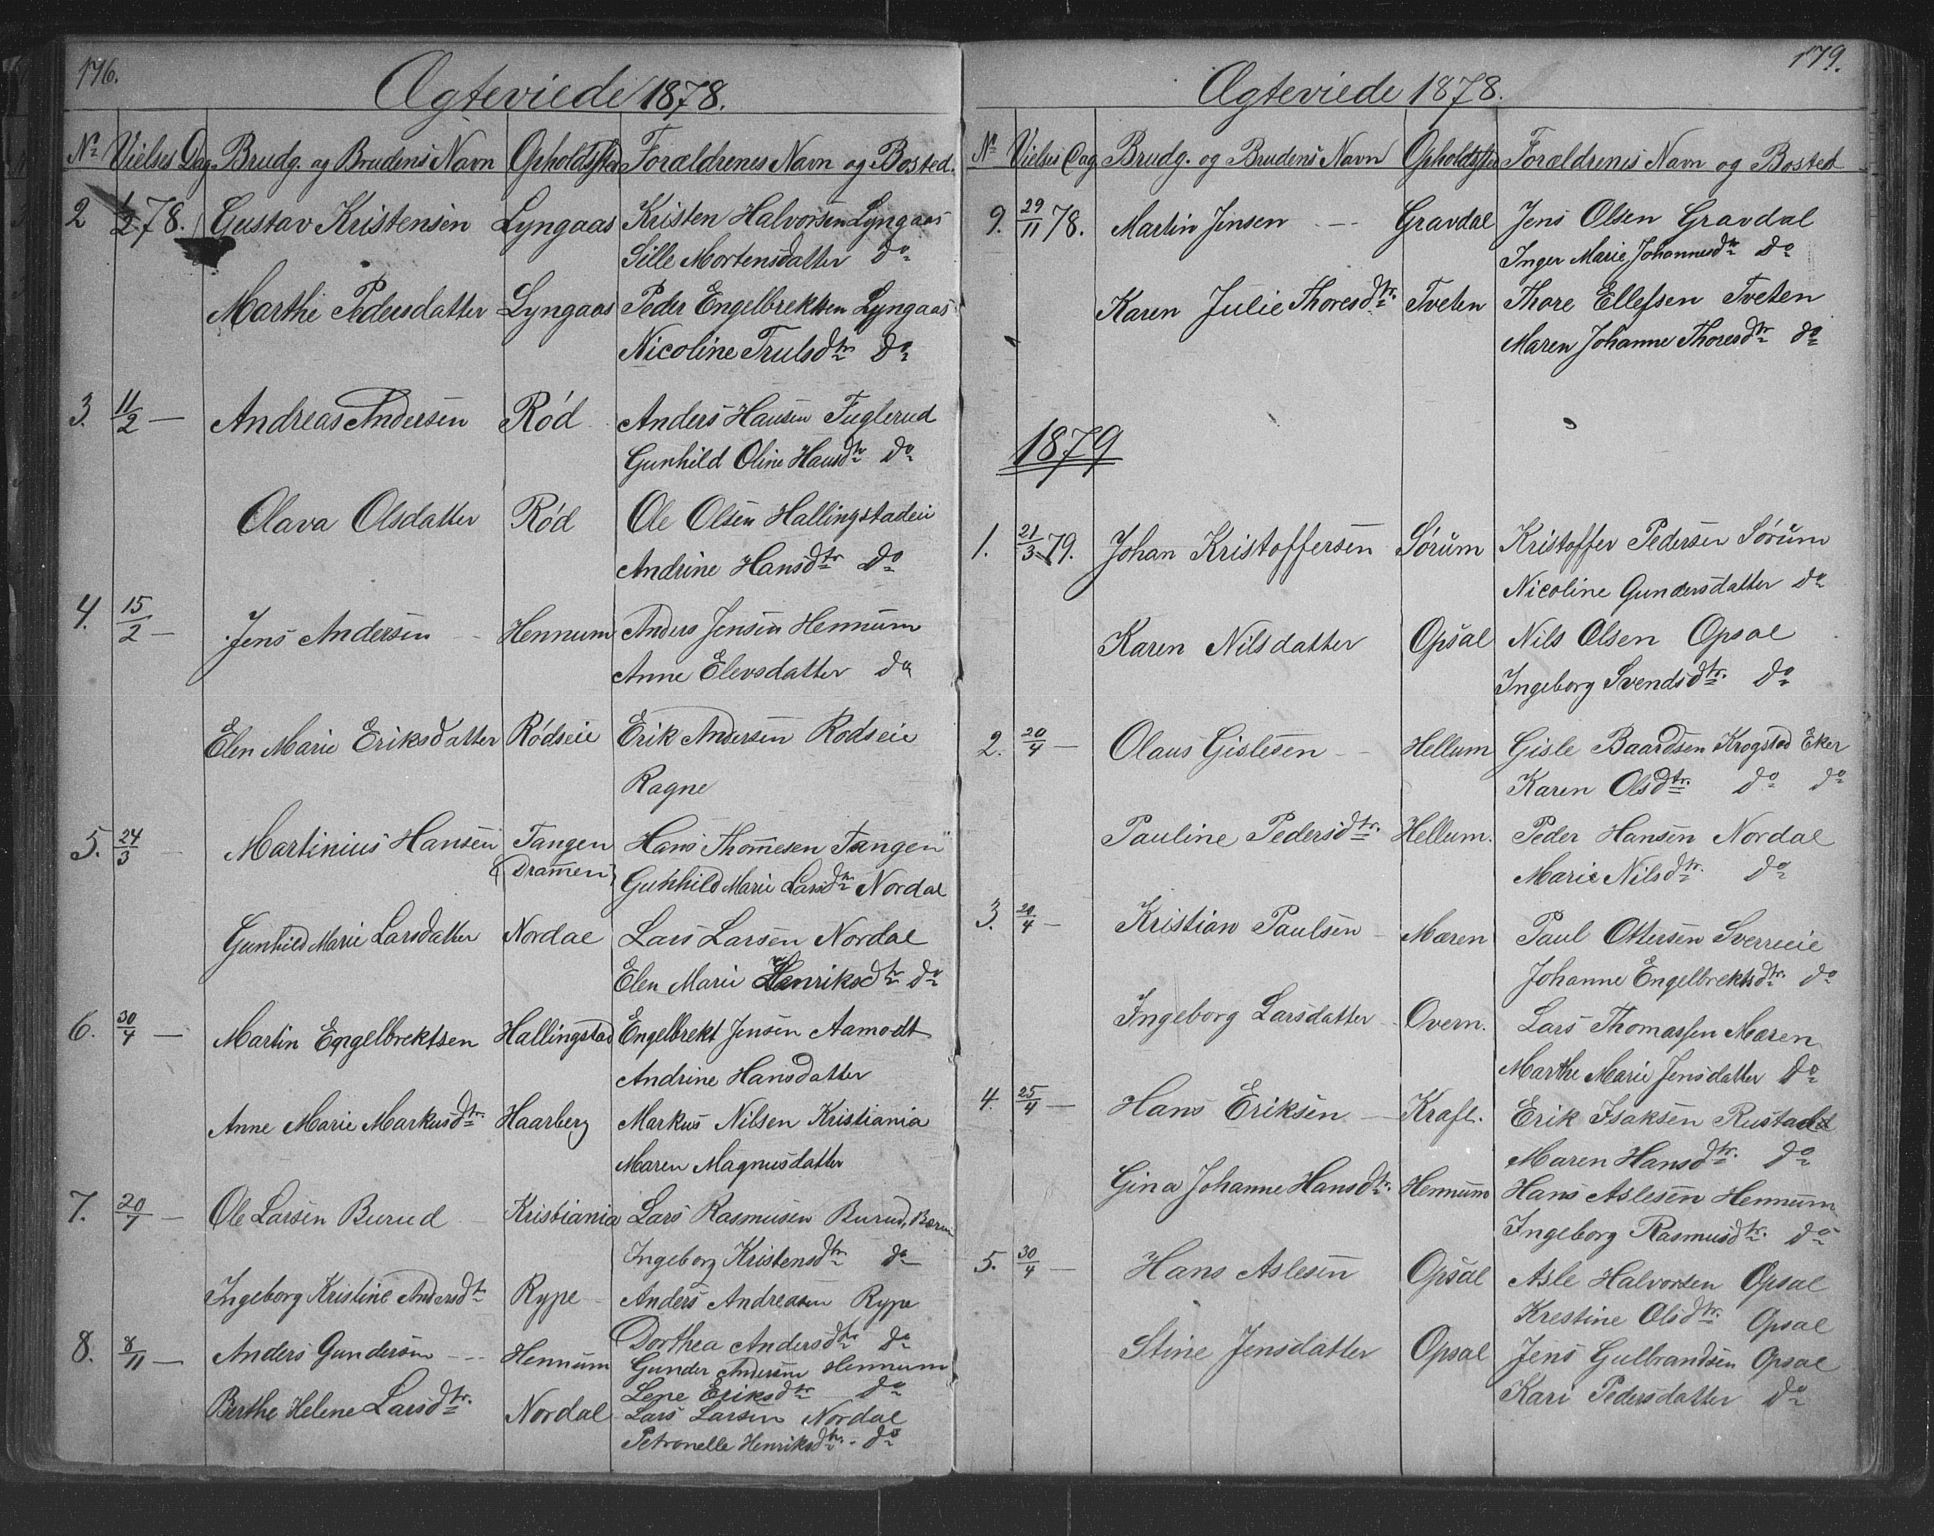 176.
Ægteviede 1878.
No Vielses Dag Brudg. og Brudens Navn Opholdsster Forældrenes Navn og Bosted.
2 1/2 78. Gustav Kristensen Lyngaas Kristen Halvorsen Lyngaas
Sille Mortensdatter Do
Marthe Pedersdatter Lyngaas Peder Engelbrektsen Lyngaas
Nicoline Trulsdtr Do
3. 11/2 — Andreas Andersen Rød Anders Hansen Fuglerud
Gunhild Oline Hansdtr Do
Olava Olsdatter Rød Ole Olsen Hallingstadeie
Andrine Hansdtr Do
4. 15/2 — Jens Andersen Hennum Anders Jensen Hennum
Anne Elevsdatter do
Elen Marie Eriksdatter Rødseie Erik Andersen Rødseie
Ragne
5. 24/3 Martinius Hansen Tangen Hans Thommesen Tangen
(Drammen) Gunhild Marie Larsdtr Nordal
Gunhild Marie Larsdatter Nordal Lars Larsen Nordal
Elen Marie Henriksdtr do
6. 30/4 — Martin Engelbrektsen Hallingstad Engelbrekt Jensen Aamodt
Andrine Hansdatter
Anne Marie Markusdtr. Haarberg Markus Nilsen Kristiania
Maren Magnusdatter
7. 20/7 — Ole Larsen Burud Kristiania Lars Rasmusen Burud,
Ingeborg Kristensdtr do
Ingeborg Kristine Andersdtr Rype Anders Andreasen Rype
Dorthea Andersdtr do
8. 8/11 — Anders Gundersen Hennum Gunder Andersen Hennum
Lene Eriksdtr Do
Berthe Helene Larsdtr. Nordal Lars Larsen Nordal
Petronelle Henriksdtr. do
179.
Ægteviede 1878.
No Vielses Dag Brudg. og Brudens Navn Opholdsster Forældrenes Navn og Bosted
9. 29/11 78. Martin Jensen Gravdal Jens Olsen Gravdal
Inger Marie Johannesdtr Do
Karen Julie Thoresdtr. Tveten Thore Ellefsen Tveten
Maren Johanne Thoresdtr do
1879
1. 21/3 79. Johan Kristoffersen Sørum Kristoffer Pedersen Sørum
Nicoline Gundersdatter do
Karen Nilsdatter Opsal Nils Olsen Opsal
Ingeborg Svendsdtr. do
2. 20/4 — Olaus Gislesen Hellum Gisle Baardsen Krogstad Eker
Karen Olsdtr. do do
Pauline Pedersdtr. Hellum. Peder Hansen Nordal
Marie Nilsdtr. do
3. 20/4 — Kristian Paulsen Mæren Paul Ottersen Sverreeie
Johanne Engelbrektsdtr. do
Ingeborg Larsdatter Overn. Lars Thomassen Mæren
Marthe Marie Jensdatter do
4. 25/4 — Hans Eriksen Kraft. Erik Isaksen Rustad
Maren Hansdtr. do
Gina Johanne Hansdtr. Hennum Hans Aslesen Hennum
Ingeborg Rasmusdtr. do
5. 30/4 — Hans Aslesen Opsal Asle Halvorsen Opsal
Krestine Olsdtr. Opsal
Stine Jensdatter Opsal Jens Gulbrandsen Opsal
Kari Pedersdatter do